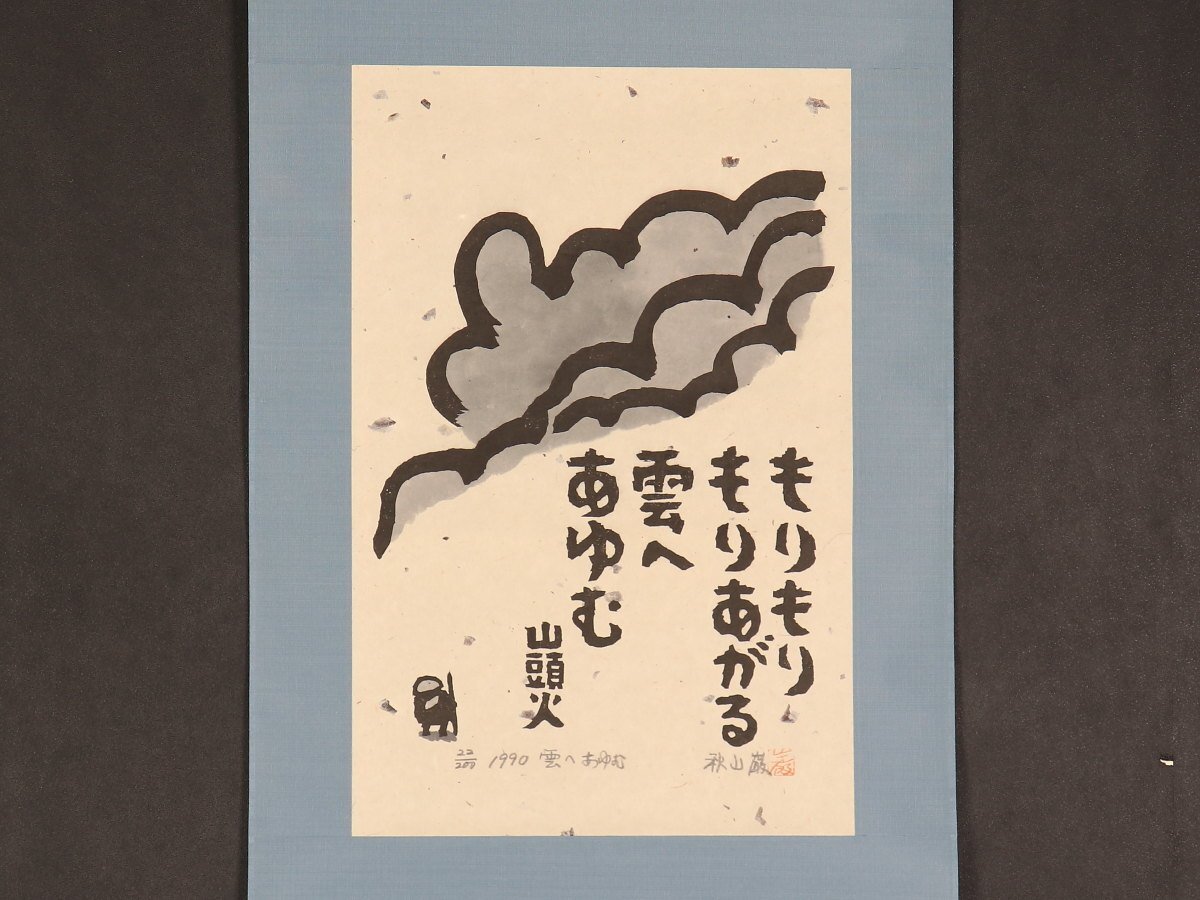 もりもり
もりあがる
雲へ
あゆむ
山頭火
22/200 1990 雲へあゆむ
秋山巌